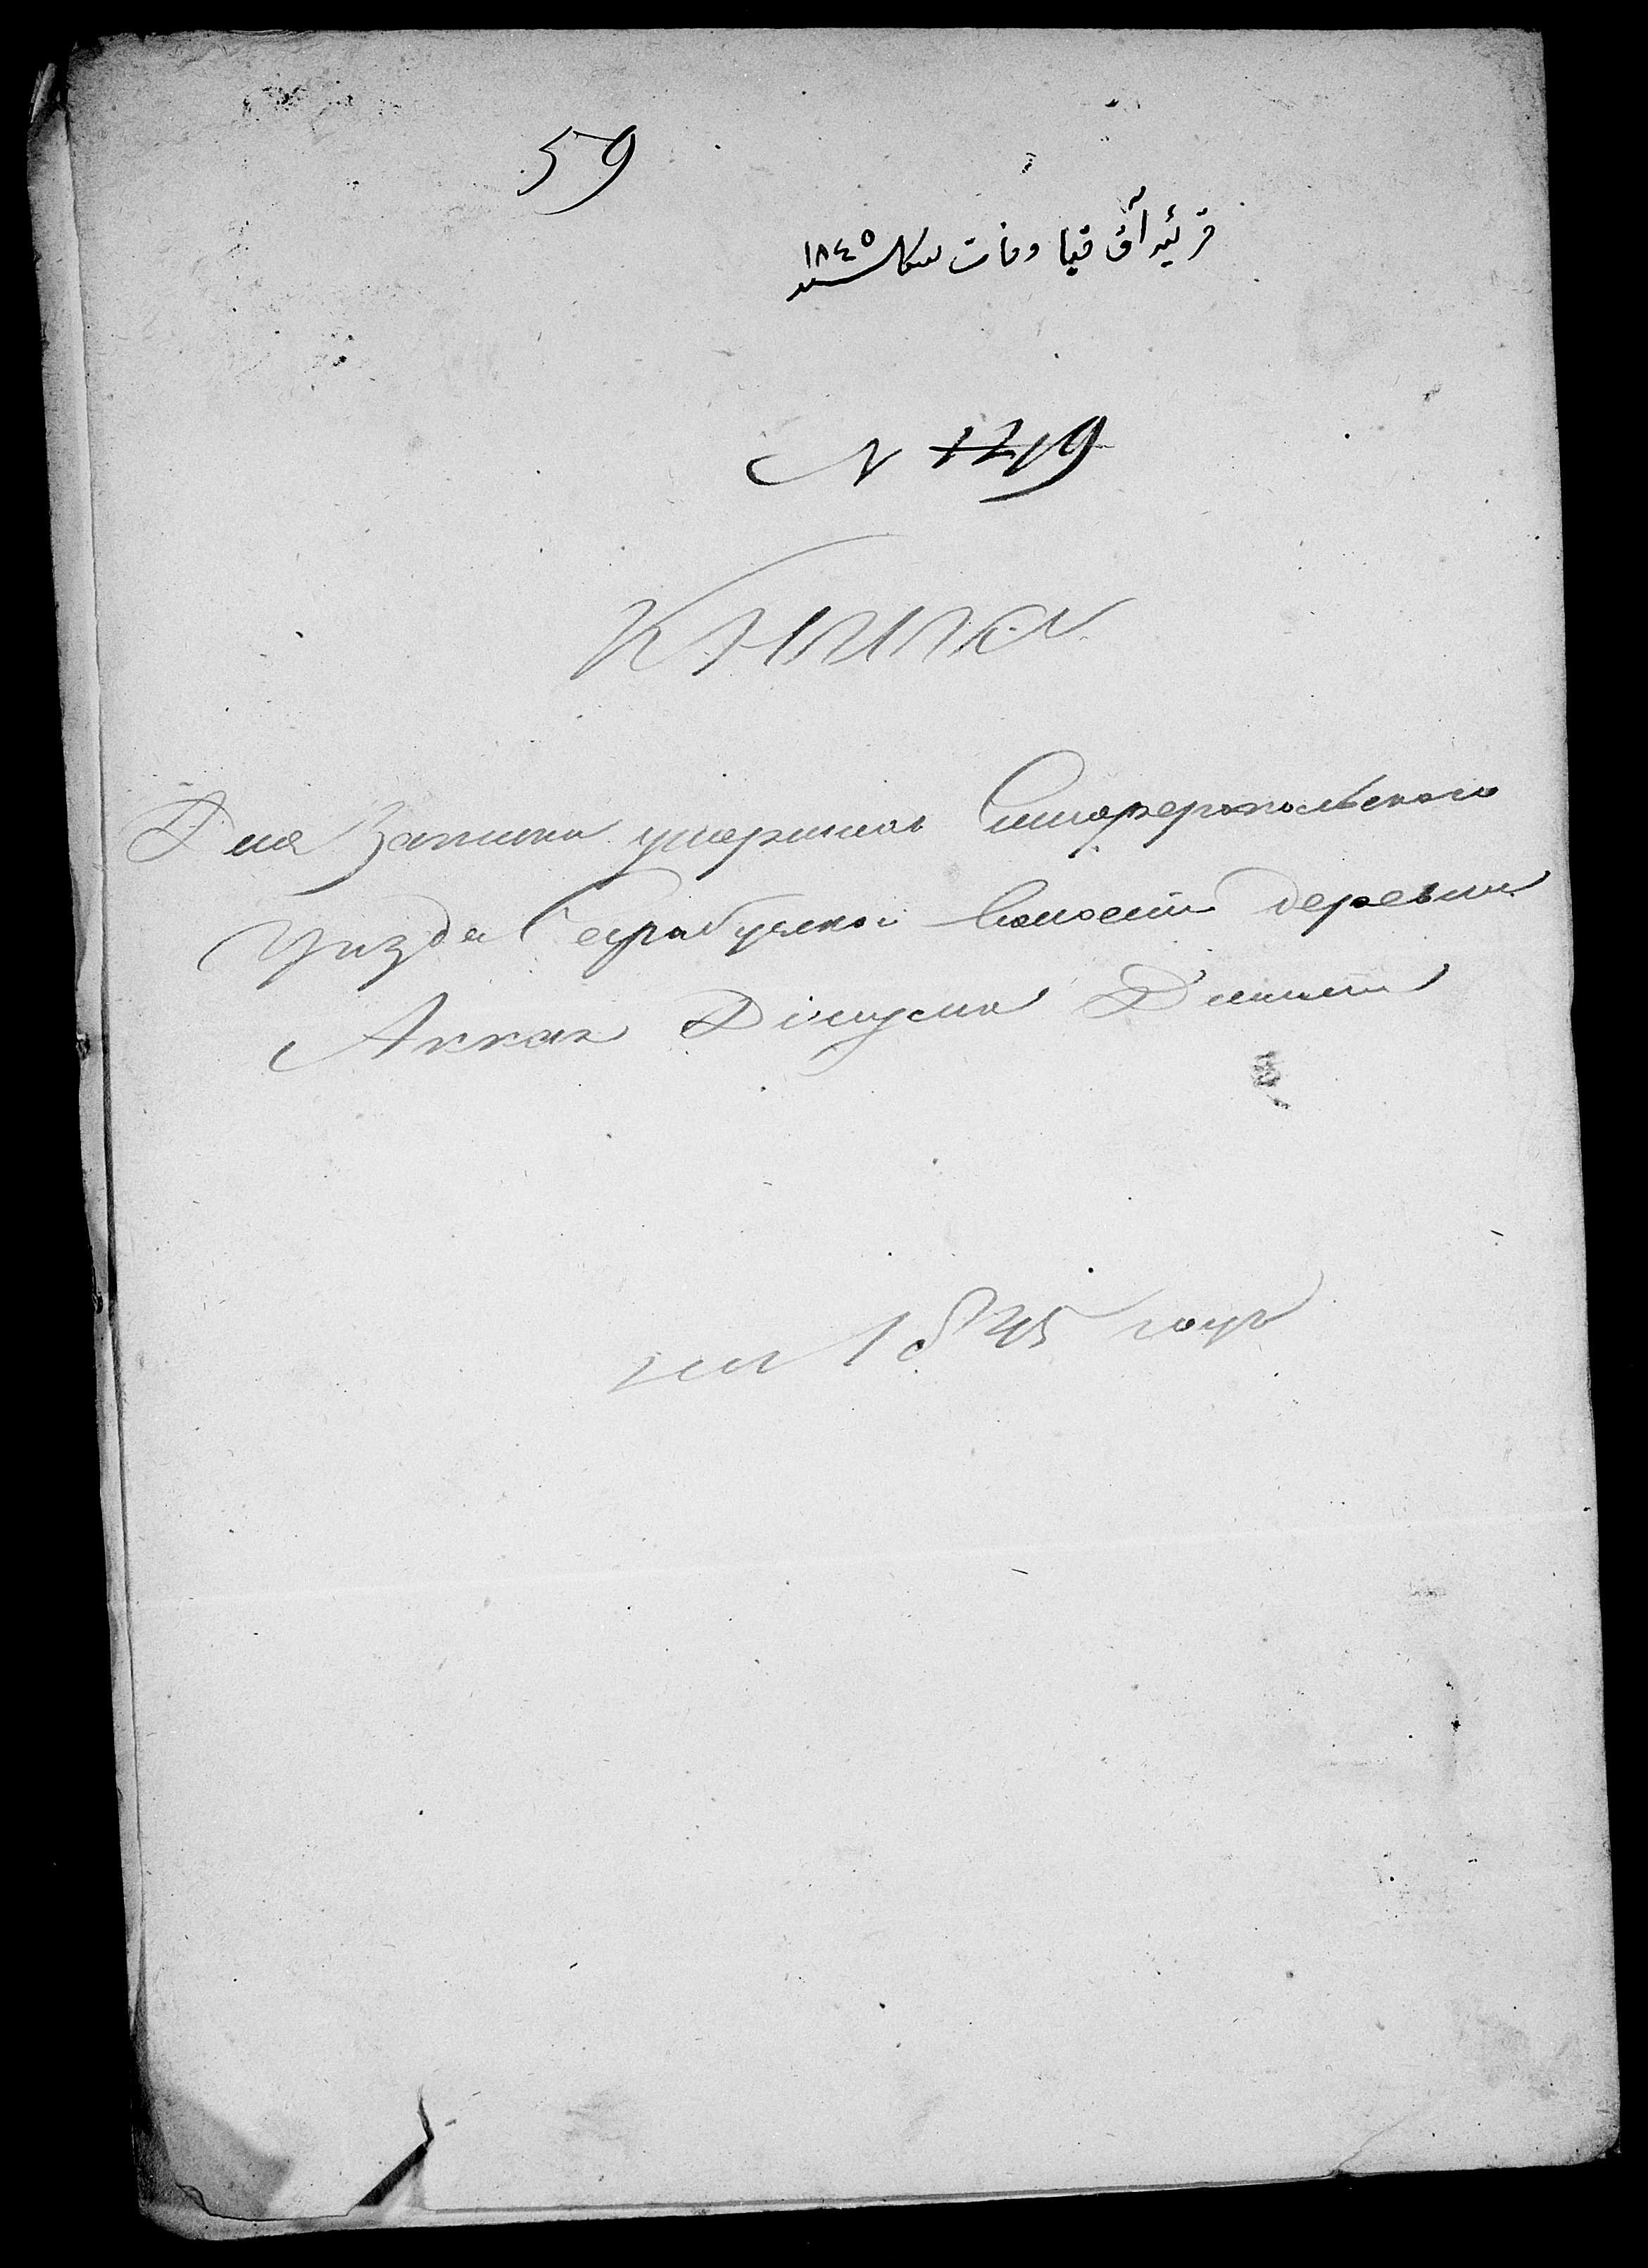 59
قريۀ آق قيا وفات سنه ١٨٤٥
N 1219
Книга
Для Записки умершихъ Симферопольского
Уизда Сарабузской Волости деревни
Аккая
на 1845 годъ